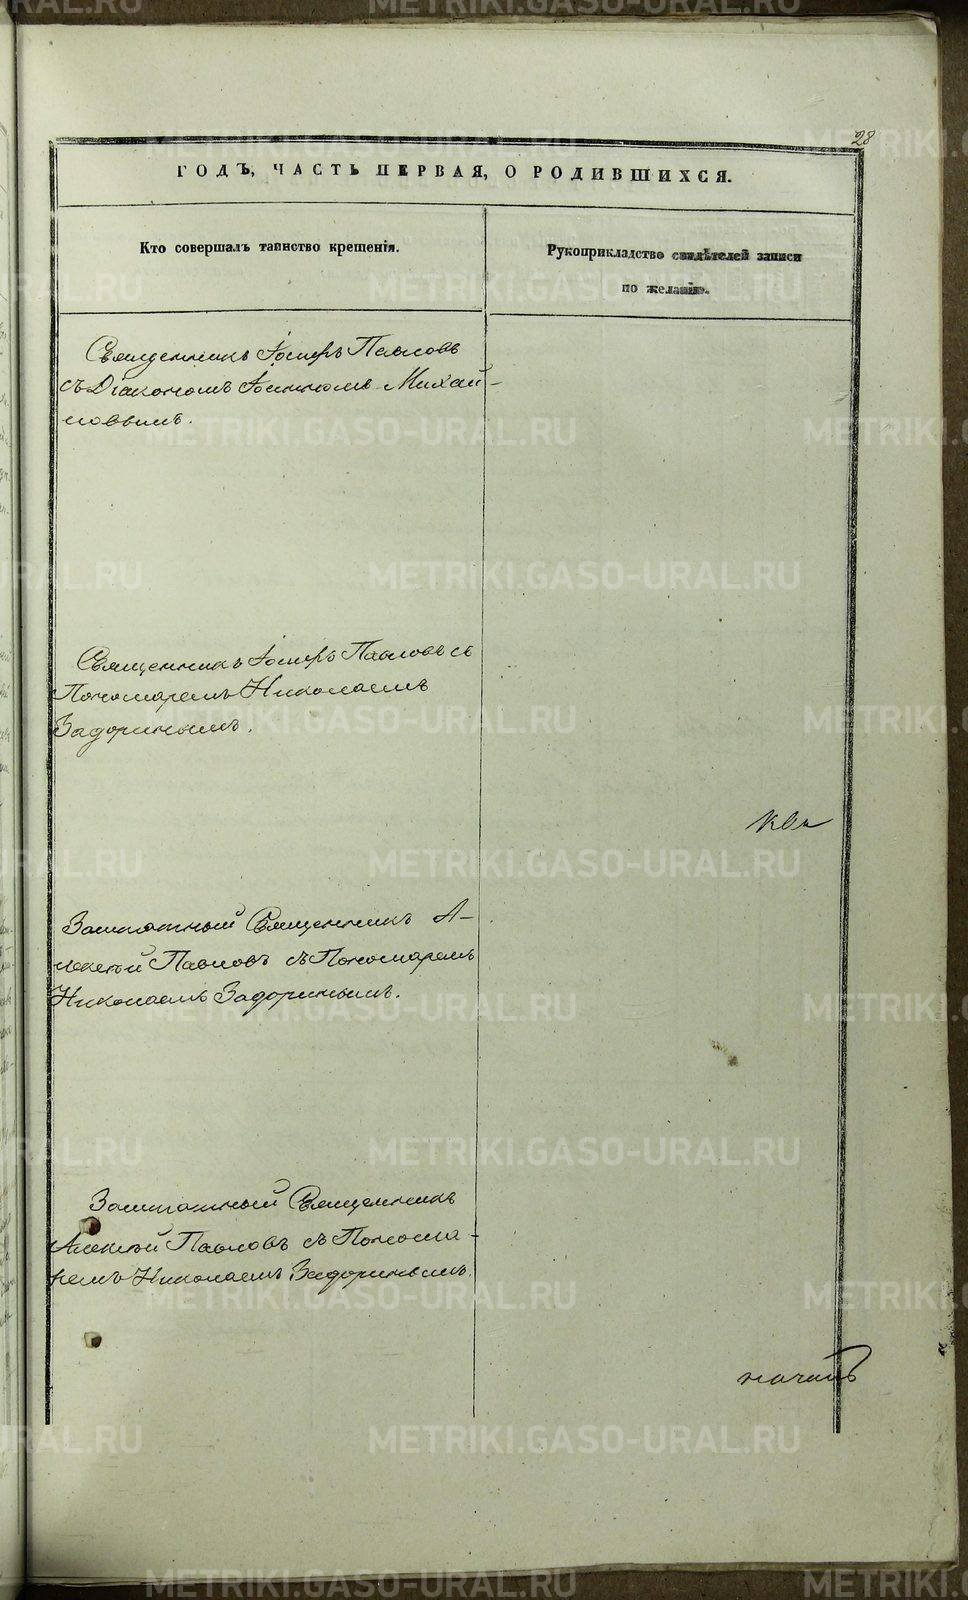 28
ГОДЪ, ЧАСТЬ ПЕРВАЯ, О РОДИВШИХСЯ.
Кто совершалъ таинство крещенія.
Рукоприкладство свидѣтелей записи
по желанію.
Священникъ Іосифъ Павловъ
съ Діакономъ Іоанномъ Михай-
ловымъ.
Священникъ Іосифъ Павловъ съ
Пономаремъ Николаемъ
Задоринымъ.
Заштатный Священникъ А-
лексѣй Павловъ съ Пономаремъ
Николаемъ Задоринымъ.
Заштатный Священникъ
Алексѣй Павловъ съ Понома-
ремъ Николаемъ Задоринымъ.
METRIKI.GASO-URAL.RU